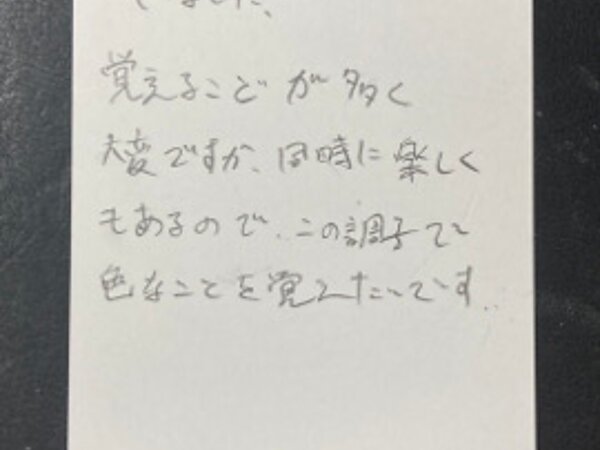 ました、
覚えることが多く
大変ですが、同時に楽しく
もあるので、この調子で
色なことを覚えたいです。